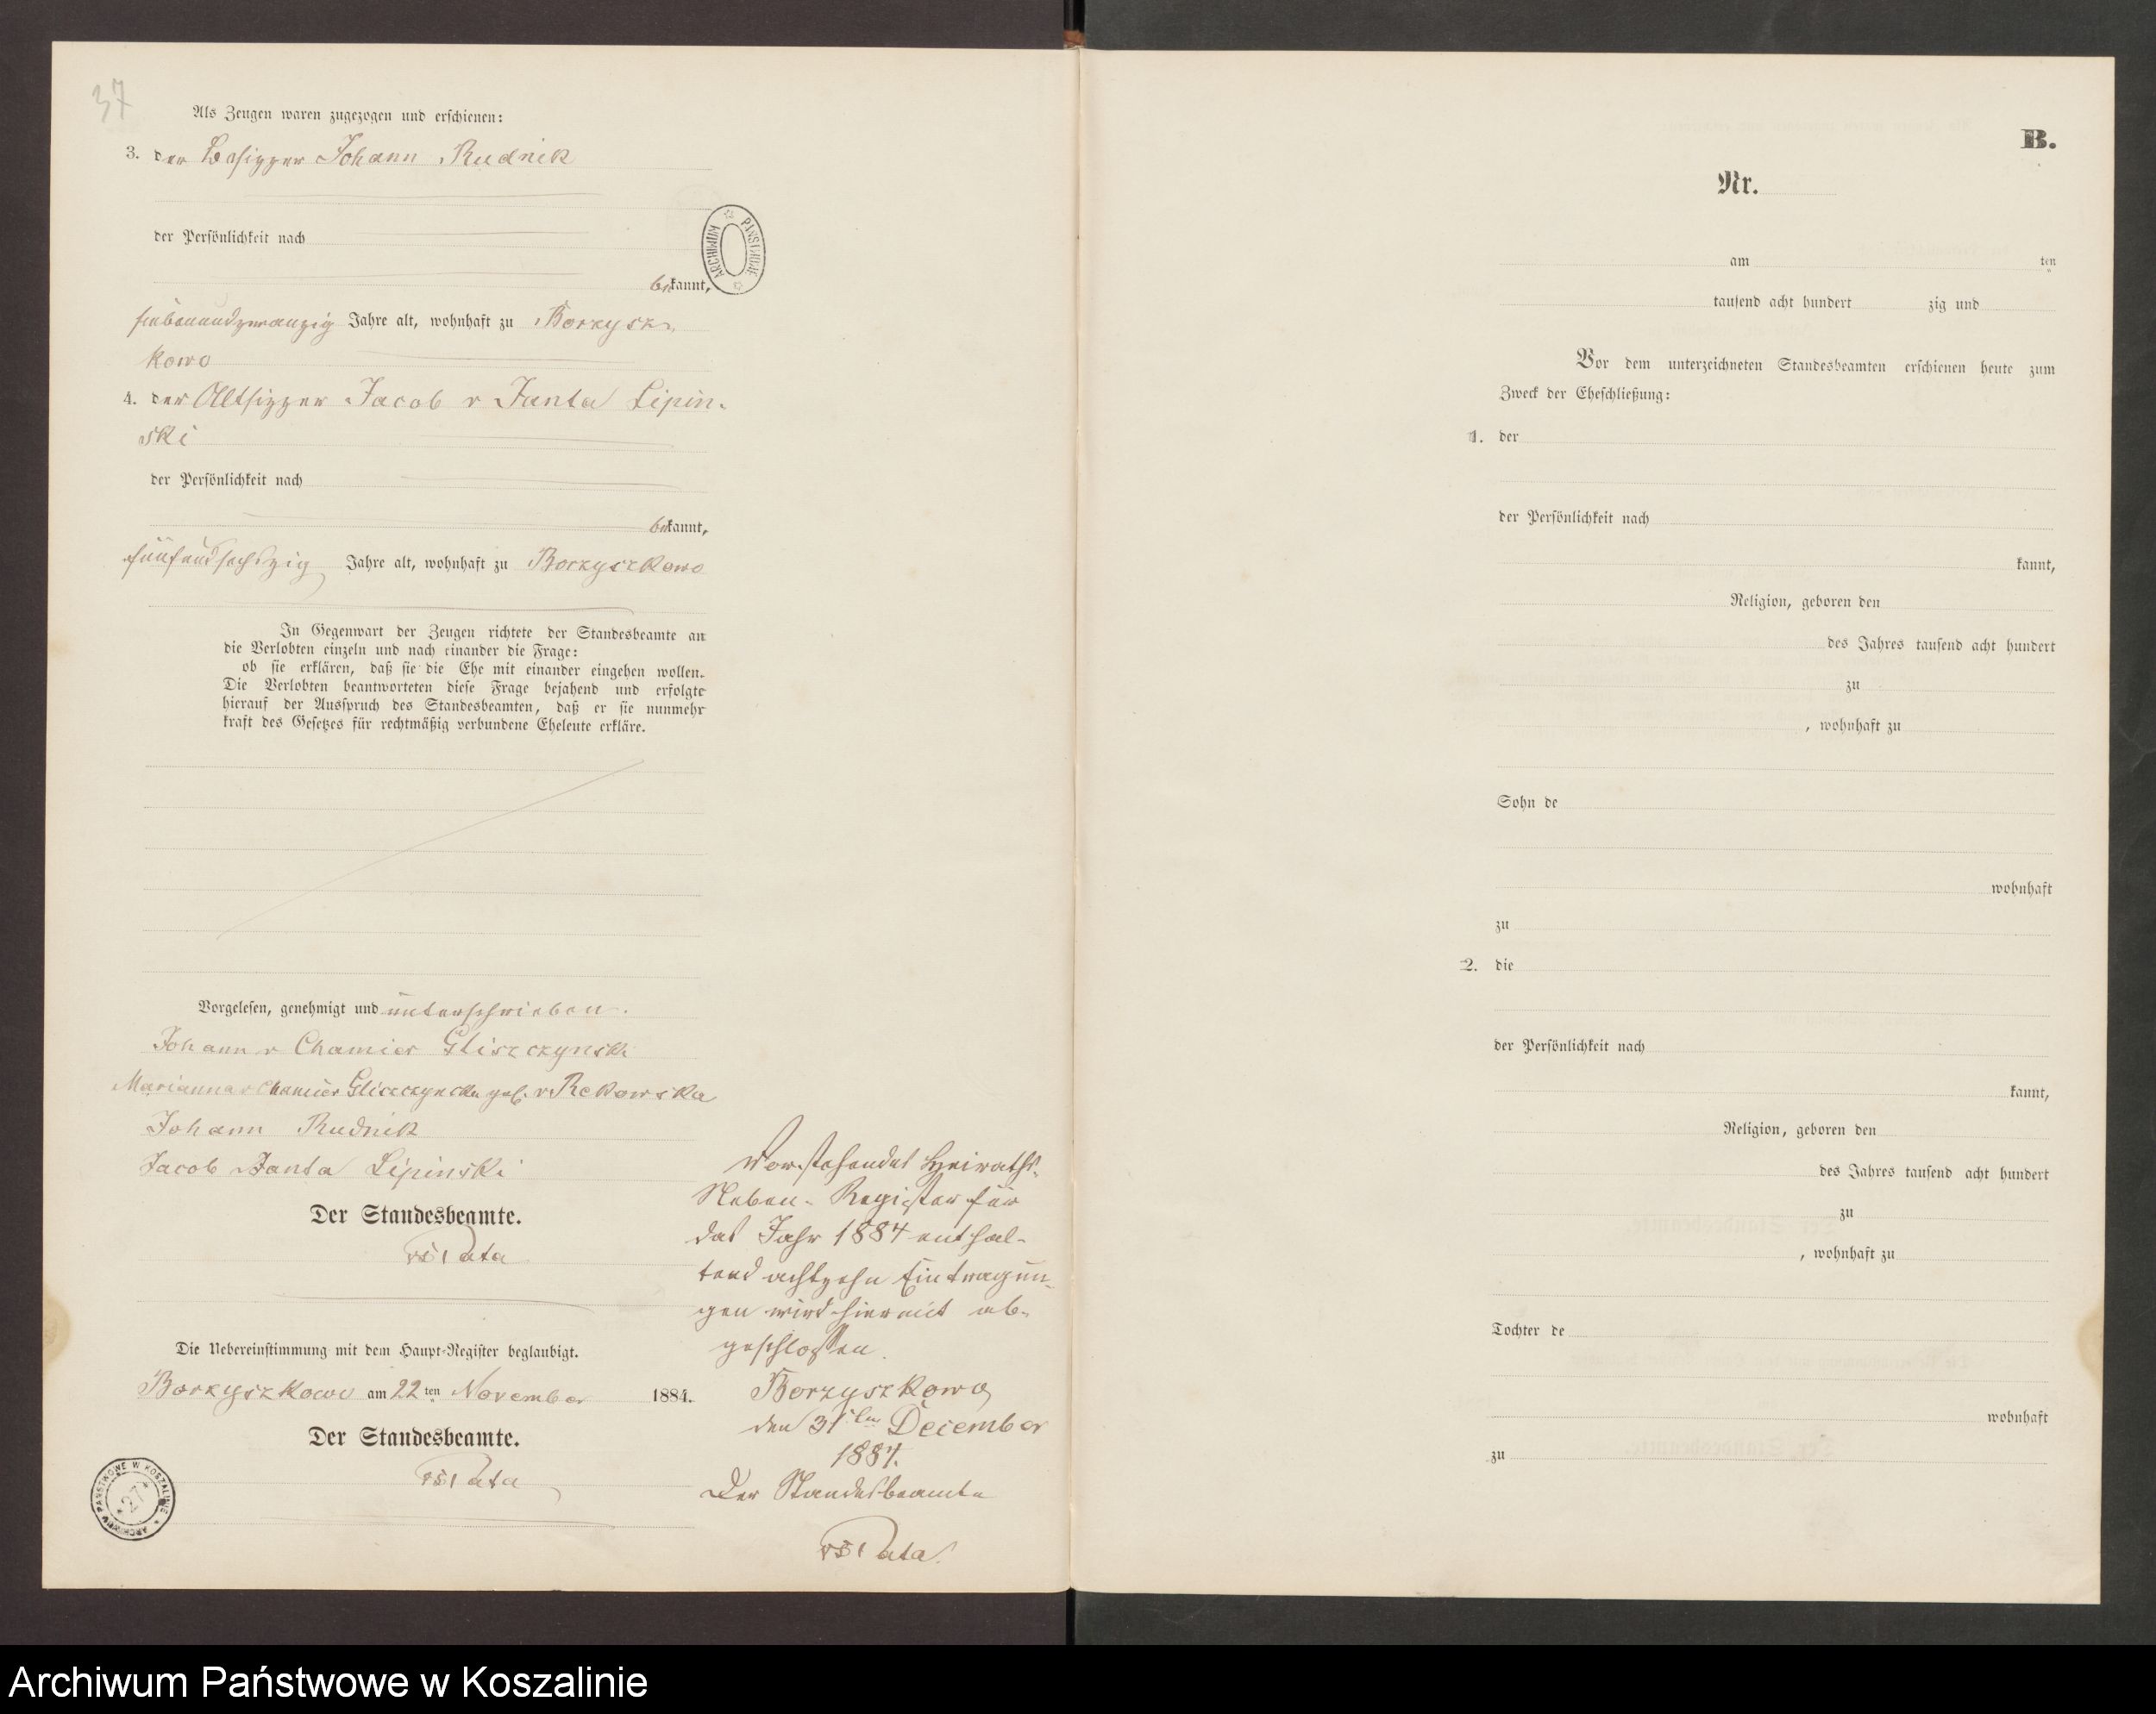 37
Als Zeugen waren zugezogen und erschienen:
3. der Besitzer Johann Rudnik
der Persönlichkeit nach
bekannt,
siebenundzwanzig Jahre alt, wohnhaft zu Borzysz-
kowo
4. der Altsitzer Jacob v Janta Lipin-
ski
der Persönlichkeit nach
bekannt,
fünfundsechszig Jahre alt, wohnhaft zu Borzyszkowo
In Gegenwart der Zeugen richtete der Standesbeamte an
die Verlobten einzeln und nach einander die Frage:
ob sie erklären, daß sie die Ehe mit einander eingehen wollen.
Die Verlobten beantworteten diese Frage bejahend und erfolgte
hierauf der Ausspruch des Standesbeamten, daß er sie nunmehr
kraft des Gesetzes für rechtmäßig verbundene Eheleute erkläre.
Vorgelesen, genehmigt und unterschrieben.
Johann v Chamier Gliszczynski
Marianna v Chamier Gliszczynska geb. v Rekowska
Johann Rudnik
Jacob Janta Lipinski
Der Standesbeamte.
Die Uebereinstimmung mit dem Haupt-Register beglaubigt.
Borzyszkowo am 22 ten November 1884.
Der Standesbeamte.
Vorstehendes Heiraths-
Neben-Register für
das Jahr 1884 enthal-
tend achtzehn Eintragun-
gen wird hiermit ab-
geschlossen.
Borzyszkowo
den 31ten December
1884.
Der Standesbeamte
ARCHIWUM PAŃSTWOWE
ARCHIWUM PAŃSTWOWE W KOSZALINIE
27
B.
Nr.
am ten
tausend acht hundert zig und
Vor dem unterzeichneten Standesbeamten erschienen heute zum
Zweck der Eheschließung:
1. der
der Persönlichkeit nach
kannt,
Religion, geboren den
des Jahres tausend acht hundert
zu
, wohnhaft zu
Sohn de
wohnhaft
zu
2. die
der Persönlichkeit nach
kannt,
Religion, geboren den
des Jahres tausend acht hundert
zu
, wohnhaft zu
Tochter de
wohnhaft
zu
Archiwum Państwowe w Koszalinie